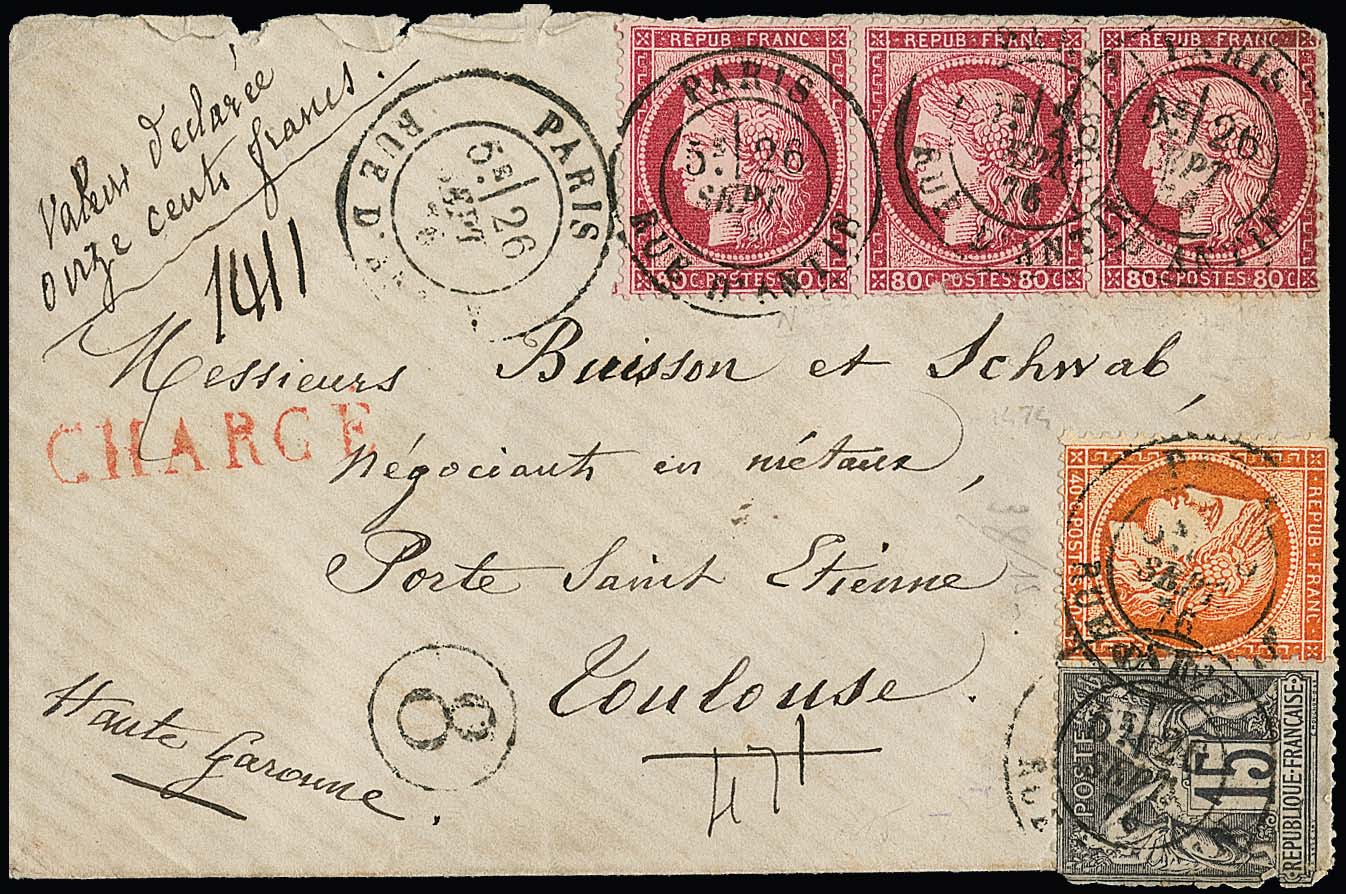 Valeur déclarée
onze cents francs.
1411
PARIS
5E 26
SEPT
RUE D'
REPUB FRANC
80 C POSTES 80 C
PARIS
5E 26
SEPT
RUE D'ANTIN
REPUB FRANC
80 C POSTES 80 C
SEPT
76
RUE D'ANTIN
REPUB FRANC
80 C POSTES 80 C
PARIS
5E 26
SEPT
ANTIN
Messieurs Buisson et Schwab
CHARGÉ
1474
négociants en métaux,
Porte Saint Etienne
Toulouse.
471
8
Haute Garonne.
REPUB FRANC
40 C POSTES 40 C
SEPT
76
RUE
POSTES
15
REPUBLIQUE FRANÇAISE
SEPT
RUE